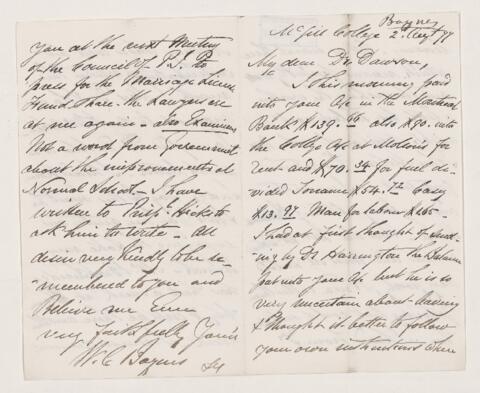 Baynes
McGill College 2d Augt 77
My dear Dr. Dawson,
I this morning paid
into your a/c in the Montreal
Bank $139.96 also $90. into
the College a/c at Molson's for
Rent and $70.34 for fuel di-
vided Torrance $54.72 Casey
$13.97 Man for labour $1.65 -
I had at first thought of send-
ing by Dr Harrington the balance
put into your a/c but he is so
very uncertain about leaving
I thought it better to follow
your own instructions when
you at the next Meeting
of the Council of P.I. to
press for the Marriage Licence
Fund Share. The Lawyers are
at me again - also Examiners
Not a word from Government
about the improvements at
Normal School - I have
written to Prinpl Hicks to
ask him to write. All
desire very kindly to be re-
membered to you and
Believe me Ever
very faithfully Yours
W. C Baynes